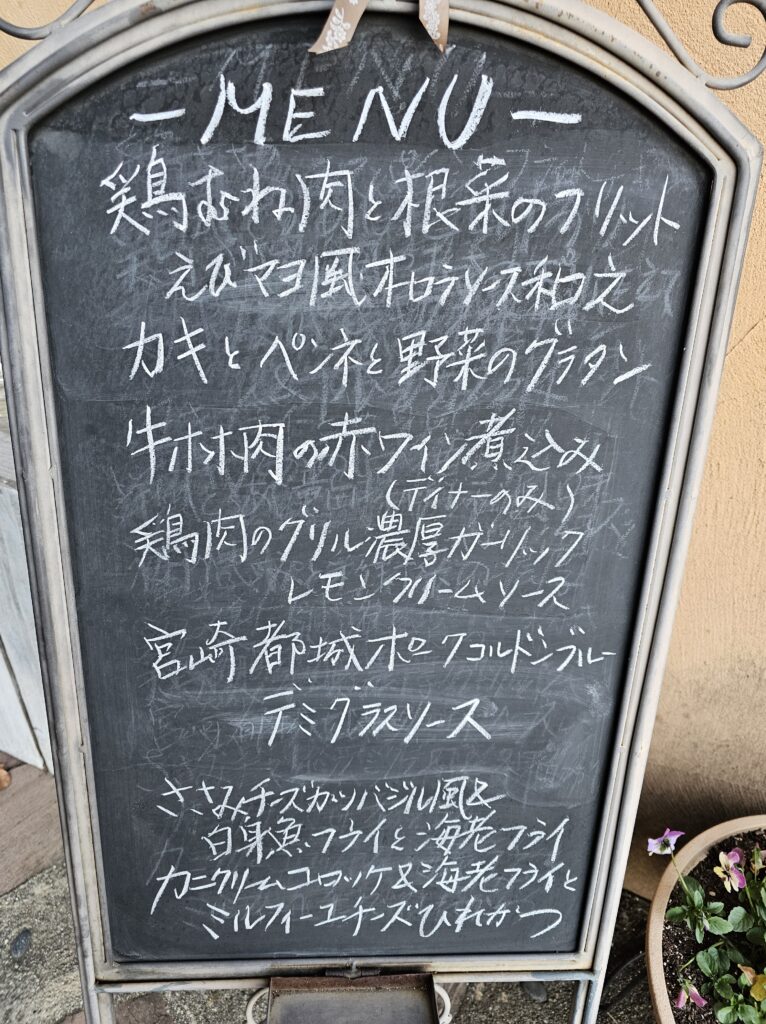 -MENU-
鶏むね肉と根菜のフリット
えびマヨ風オロラソース和え
カキとペンネと野菜のグラタン
牛ホホ肉の赤ワイン煮込み
(ディナーのみ)
鶏肉のグリル濃厚ガーリック
レモンクリームソース
宮崎都城ポークコルドンブルー
デミグラスソース
ささみチーズカツバジル風&
白身魚フライと海老フライ
カニクリームコロッケ&海老フライと
ミルフィーユチーズひれかつ